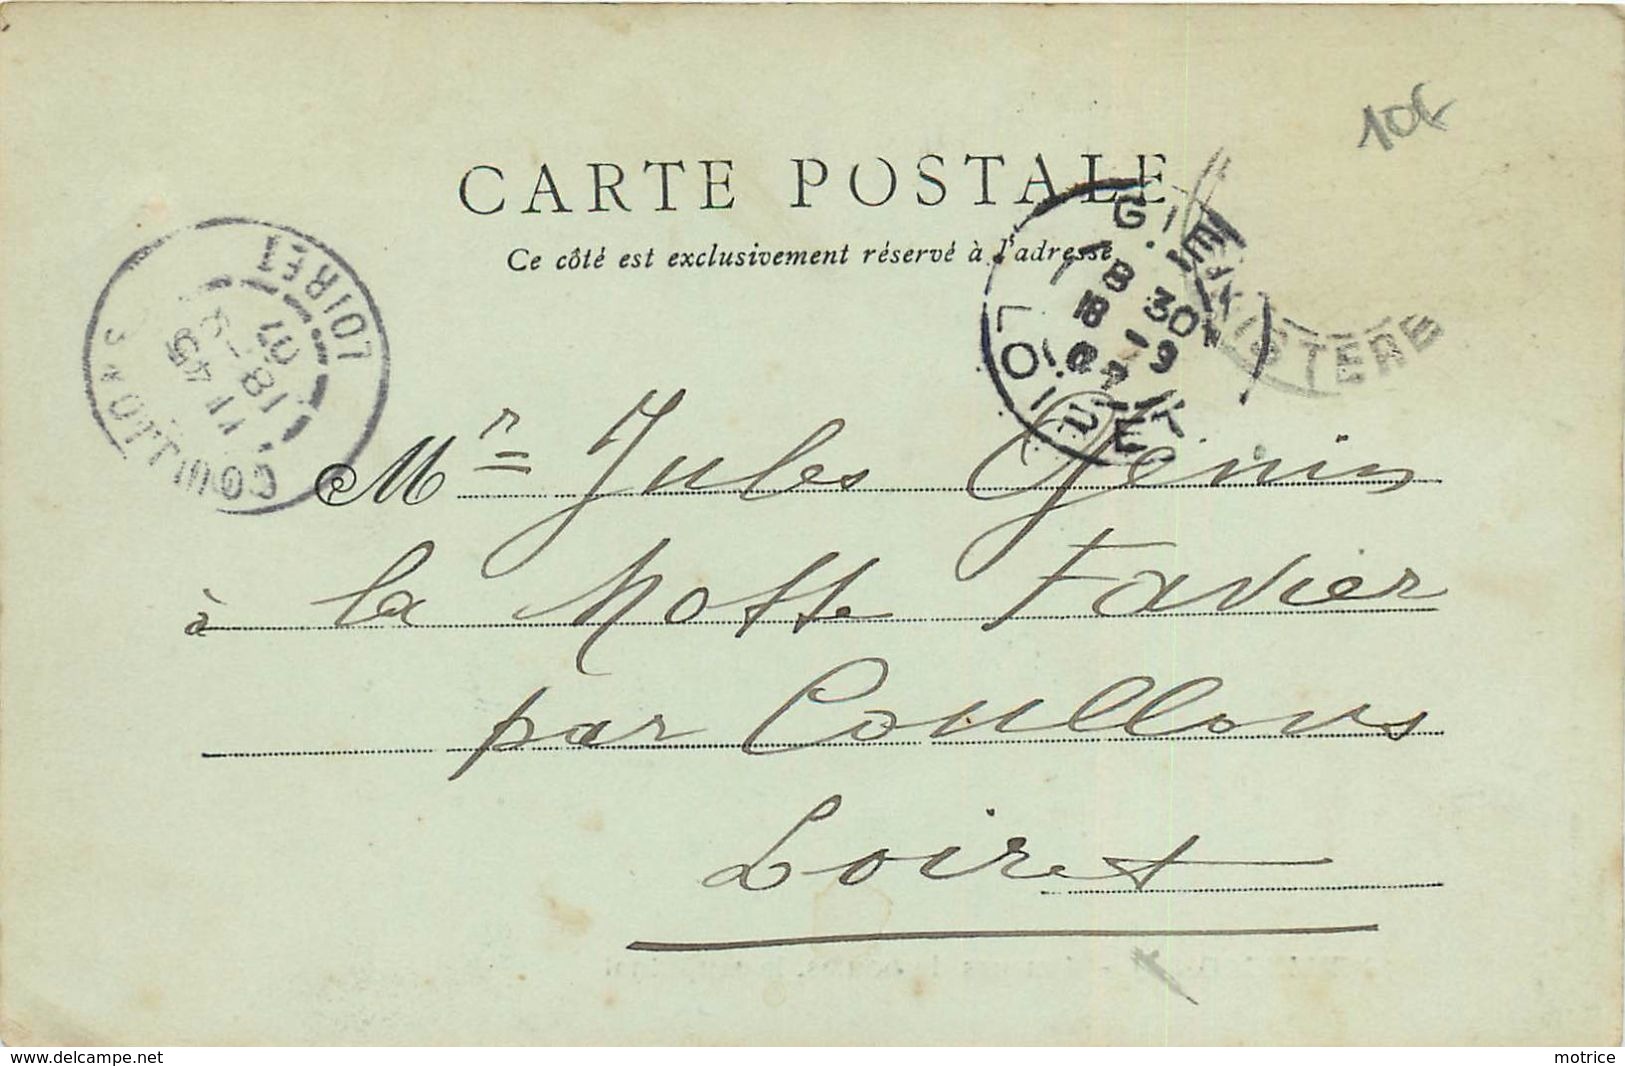 10€
CARTE POSTALE
Ce côté est exclusivement réservé à l'adresse
COULLONS
LOIRET
11 45
18 -9
07
GIEN
8 30
18 -9
07
LOIRET
FINISTERE
Mr Jules Génin
à la Motte Favier
par Coullons
Loiret
www.delcampe.net
motrice